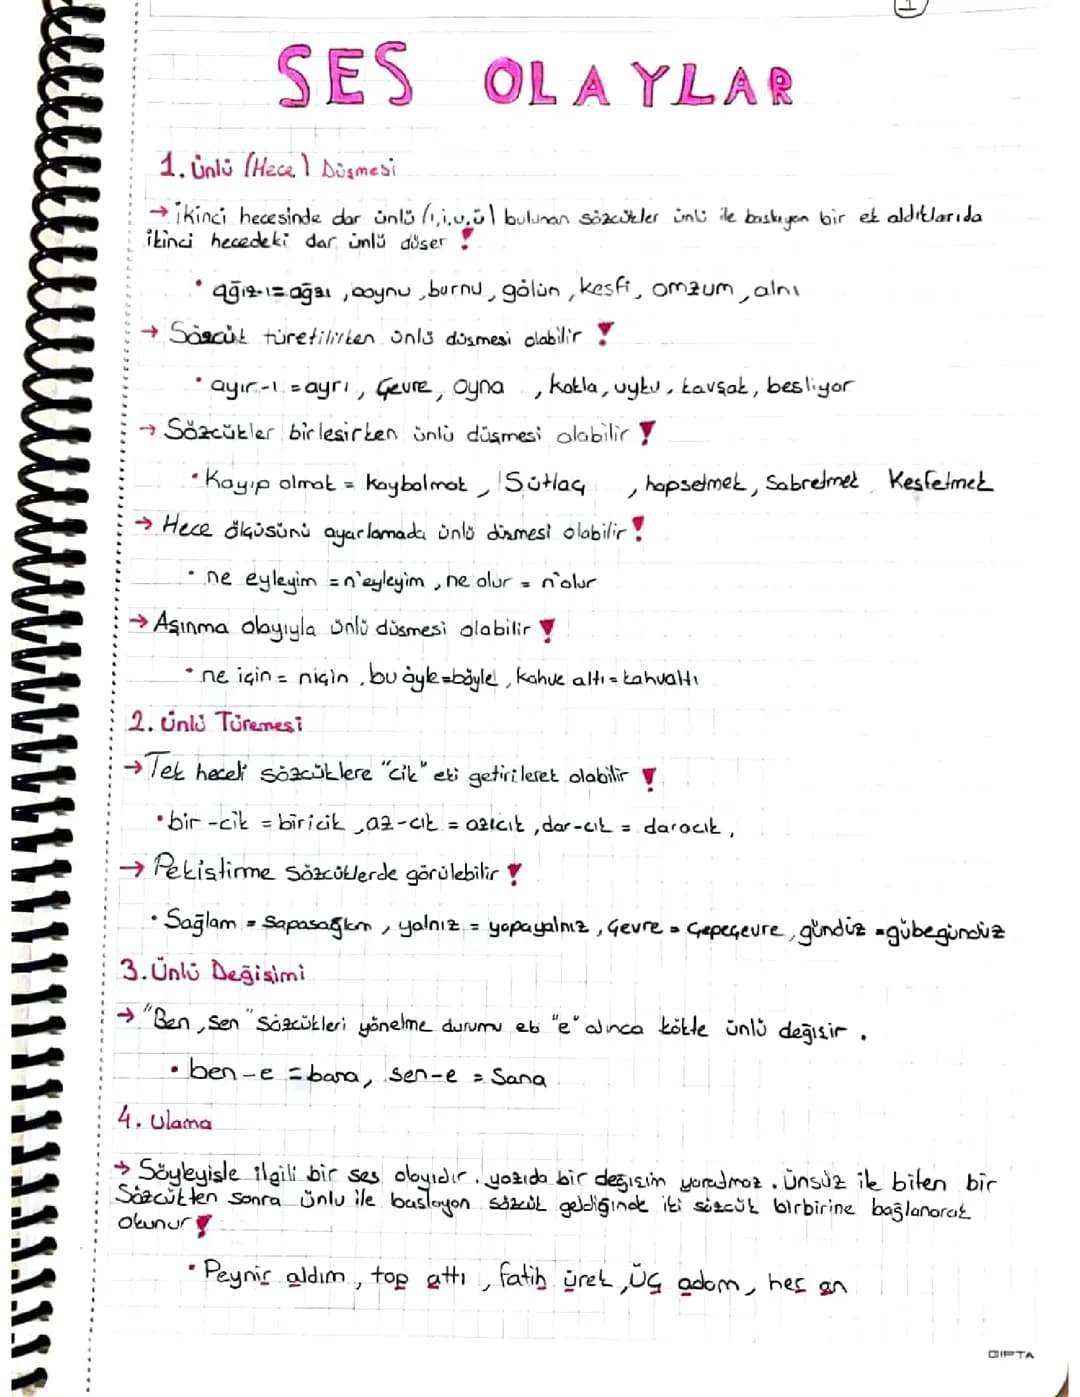 1
SES OLAYLAR
1. Ünlü (Hece) Düşmesi
→ İkinci hecesinde dar ünlü (ı,i,u,ü) bulunan sözcükler ünlü ile başlıyan bir ek aldıklarıda
ikinci hecedeki dar ünlü düşer !
• ağız-ı=ağzı, boynu, burnu, gölün, keşfi, omzum, alnı
→ Sözcük türetilirken ünlü düşmesi olabilir !
• ayır-ı = ayrı, Çevre, oyna, kokla, uyku, kavşak, besliyor
→ Sözcükler birleşirken ünlü düşmesi olabilir !
• Kayıp olmak = Kaybolmak, Sütlaç, hapsetmek, Sabretmek Keşfetmek
→ Hece ölçüsünü ayarlamada ünlü düşmesi olabilir !
• ne eyleyim = n'eyleyim, ne olur = n'olur
→ Aşınma olayıyla ünlü düşmesi olabilir !
• ne için = niçin, bu öyle=böyle, kahve altı = kahvaltı
2. Ünlü Türemesi
→ Tek heceli sözcüklere "cik" eki getirilerek olabilir !
• bir -cik = biricik, az-cık = azıcık, dar-cık = daracık,
→ Pekiştirme sözcüklerde görülebilir !
• Sağlam = Sapasağlam, yalnız = yapayalnız, Çevre = Çepeçevre, gündüz = gübegündüz
3. Ünlü Değişimi
→ "Ben, Sen" sözcükleri yönelme durumu eki "e" alınca kökte ünlü değişir.
• ben-e = bana, sen-e = Sana
4. Ulama
→ Söyleyişle ilgili bir ses olayıdır. yazıda bir değişim yaratmaz. Ünsüz ile biten bir
Sözcükten sonra ünlü ile başlayan sözcük geldiğinde iki sözcük birbirine bağlanarak
okunur !
• Peynir aldım, top attı, fatih ürek, Üç adam, her an
GIPTA